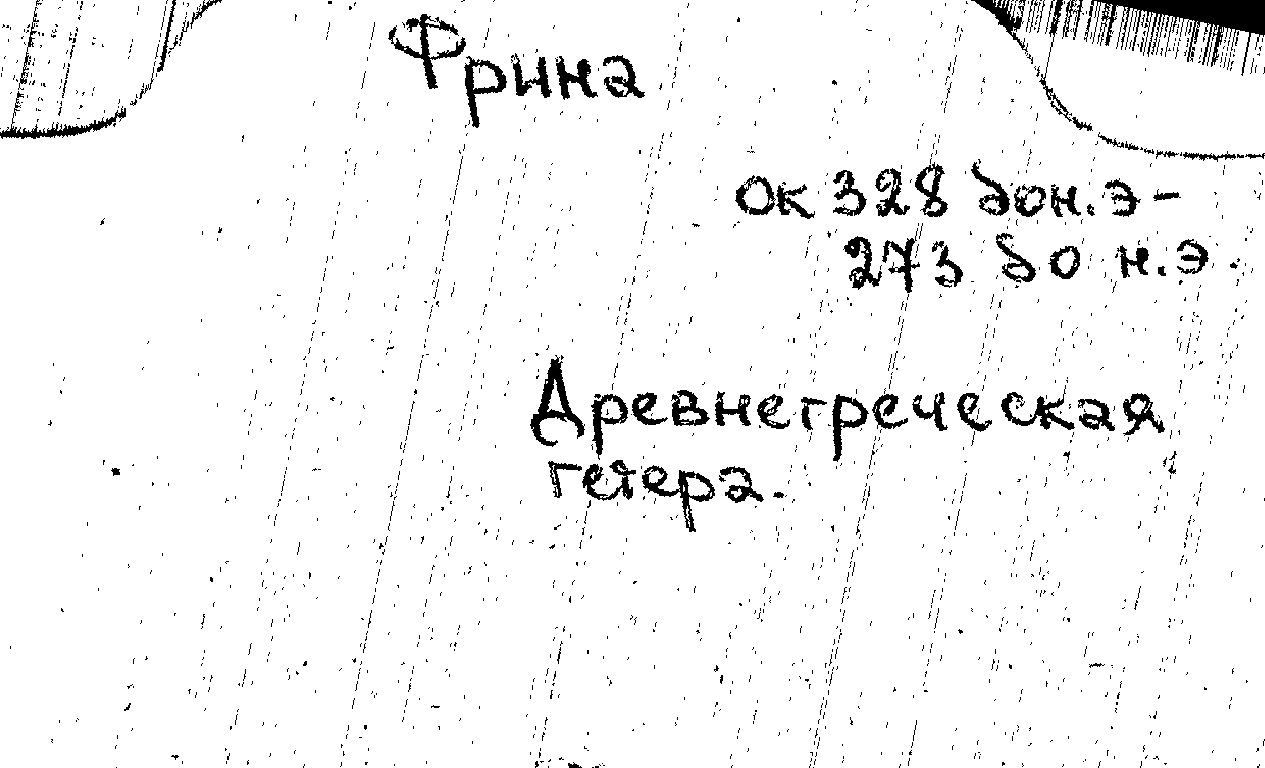 Фрина
Ок 328 до н.э -
273 до н.э.
Древнегреческая
гетера.